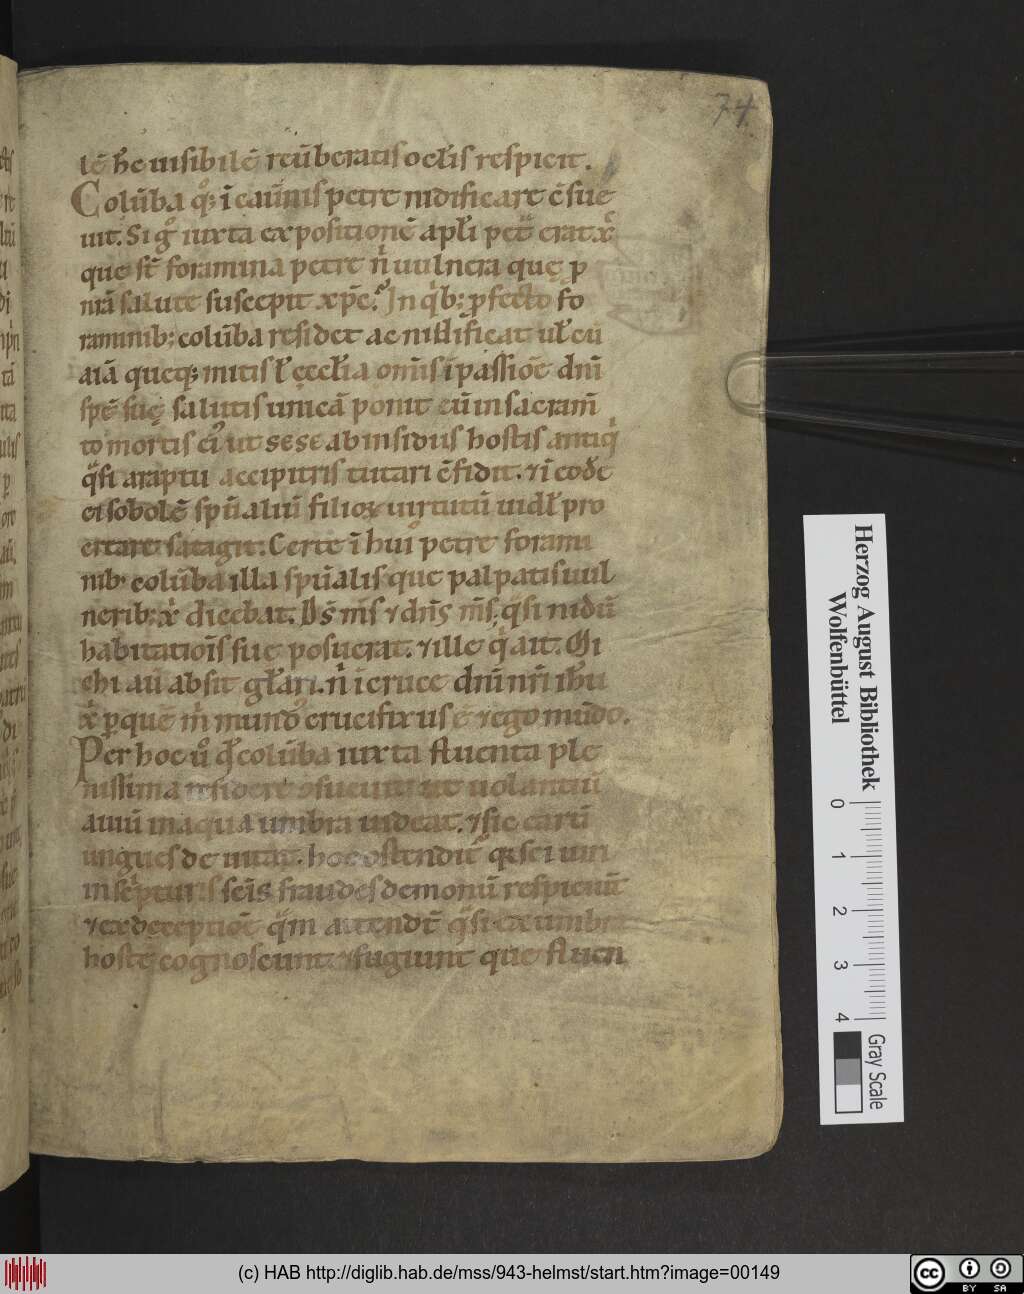 74.
lē hc̄ uisibilē reūberatis ocl̄is respicit.
Colūba qͦꝫ ī cauīnis petre nidificare c̄sue
uit. Si gͦ iuxta expositionē apl̄i petͣ erat xͥ
que st̄ foramina petre nͥ uulnera quę ꝓ
nrā salute suscepit xp̄c. In qͥbꝫ ꝓfecto fo
raminibꝫ colūba residet ac nidificat ul̄ cū
aīa queqꝫ mitis ł ęccl̄ia om̄s ī passiōe dnī
spē suę salutis unicā ponit cū in sacram̄
to mortis ei ut sese ab insidiis hostis antiqͥ
qͣsi a raptu accipitris tutari c̄fidit. ⁊ ī eodē
ei sobolē spūaliū filioꝝ uirtutū uidł pro
creare satagit. Certe ī hui petre forami
nibꝫ colūba illa spūalis que palpatis uul
neribꝫ xͥ dicebat. Ds̄ ms̄ ⁊ dn̄s ms̄, qͣsi nidū
habitatiōis sue posuerat. ⁊ ille qͥ ait. Mi
chi aū absit gl̄ari. nͥ ī cruce dnī nrī ih̄u
xͥ ꝑ que m̄ mundͦ crucifixus ē ⁊ ego mūdo.
Per hoc ūͦ qd̄ colūba iuxta fluenta ple
nissima residere ↄsueuit ut uolantiū
auiū in aqua umbra uideat. ⁊ sic earū
ungues deuitat. hoc ostendit̄ qꝫ sc̄i uiri
in sc̄pturis scīs fraudes demonū respiciūt
⁊ ex deceptiōē qͣm attendt̄ qͣsi ex umbra
hostē cognoscunt ⁊ fugiunt que fluen
Herzog August Bibliothek
Wolfenbüttel
0 1 2 3 4
Gray Scale
(c) HAB http://diglib.hab.de/mss/943-helmst/start.htm?image=00149
cc BY SA